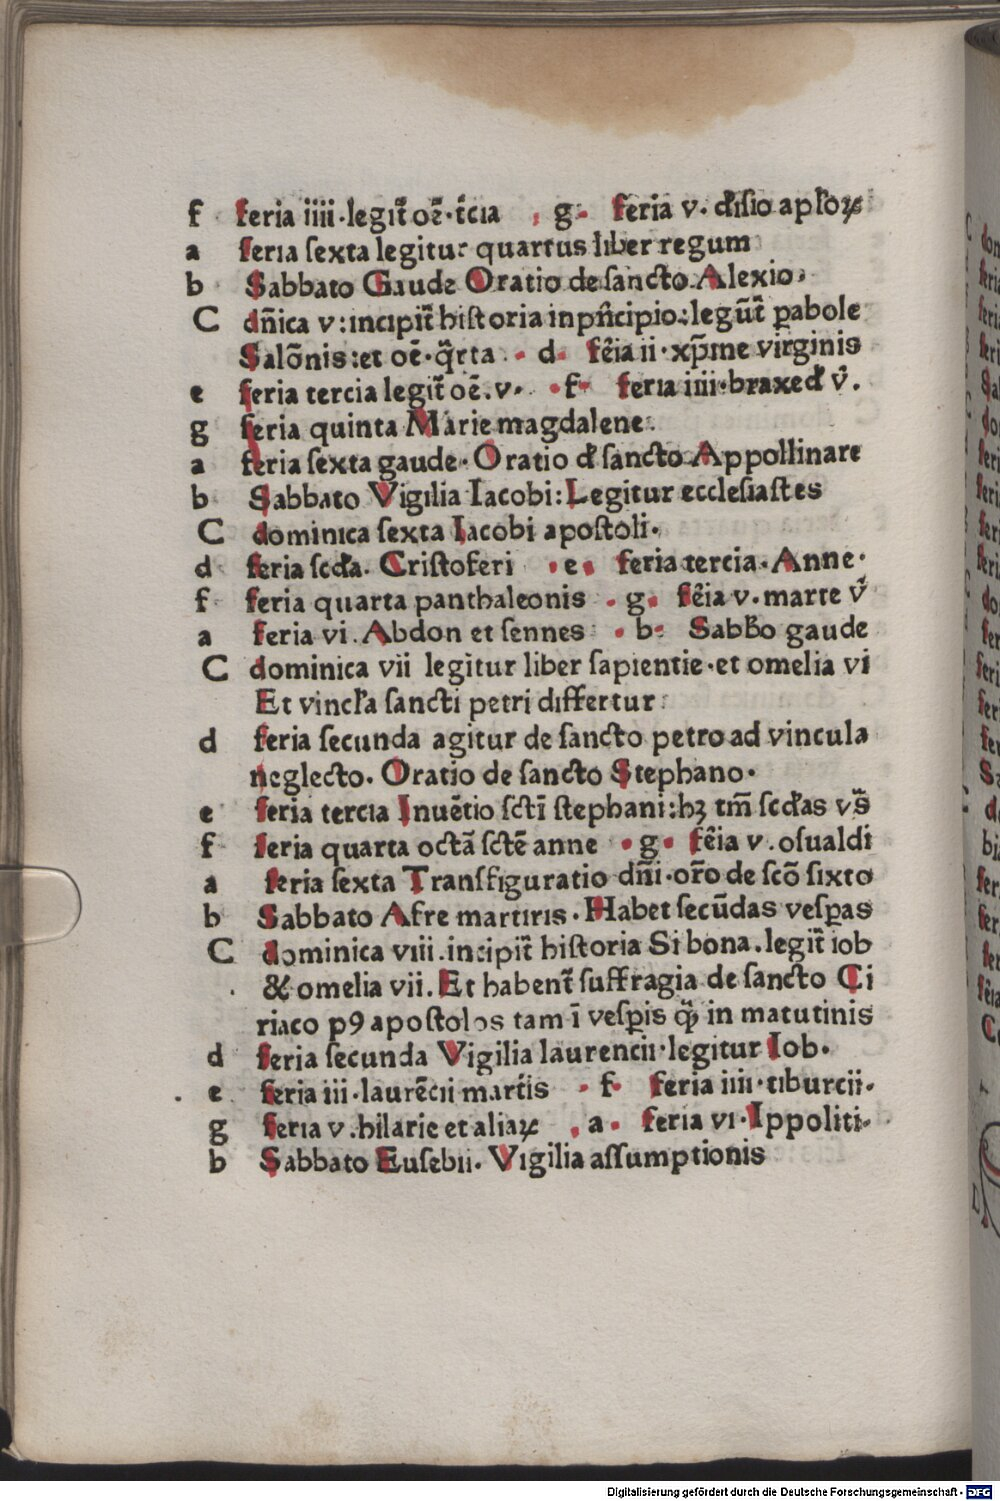 f feria iiii·legit̃ oẽ·t̃cia . g· feria v· diſio apl̃oꝝ
a feria ſexta legitur quartus liber regum
b Sabbato Gaude Oratio de ſancto Alexio·
C dñica v:incipit̃ hiſtoria in pñcipio:legũt̃ ꝑabole
Salõnis:et oẽ·q̃rta · d· fẽia ii·xp̃ine virginis
e feria tercia legit̃ oẽ.v· ·f· feria iiii·braxed v̾.
g feria quinta Marie magdalene·
a feria ſexta gaude·Oratio đ ſancto Appollinare
b Sabbato Vigilia Iacobi:Legitur eccleſiaſtes
C dominica ſexta Iacobi apoſtoli·
d feria ſcđa. Criſtoferi ·e· feria tercia·Anne·
f feria quarta panthaleonis ·g· fẽia v.marte v̾
a feria vi.Abdon et ſennes ·b· Sabb̃o gaude
C dominica vii legitur liber ſapientie·et omelia vi
Et vincl̃a ſancti petri differtur:
d feria ſecunda agitur de ſancto petro ad vincula
neglecto. Oratio de ſancto Stephano·
e feria tercia Inuẽtio ſctĩ ſtephani:hꝫ tm̃ ſcđas vs̃
f feria quarta octã ſctẽ anne ·g· fẽia v.oſualdi
a feria ſexta Tranſfiguratio dñi·or̃o de ſcõ ſixto
b Sabbato Afre martiris·Habet ſecũdas veſꝑas
C dominica viii.incipit̃ hiſtoria Si bona.legit̃ iob
& omelia vii.Et habent̃ ſuffragia de ſancto Ci
riaco p9 apoſtolos tam ĩ veſꝑis q̃ꝫ in matutinis
d feria ſecunda Vigilia laurencii·legitur Iob·
e feria iii·laurẽcii mart̃is · f· feria iiii·tiburcii·
g feria v.hilarie et aliaꝝ .a· feria vi·Ippoliti·
b Sabbato Euſebii. Vigilia aſſumptionis
Digitalisierung gefördert durch die Deutsche Forschungsgemeinschaft - DFG